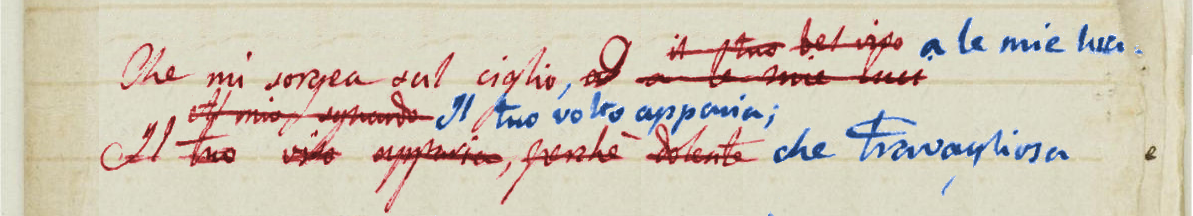 il tuo bel viso a le mie luci.
Che mi sorgea sul ciglio, a le mie luci
Al mio sguardo Il tuo volto apparia;
Il tuo viso apparia, perchè dolente che Travagliosa